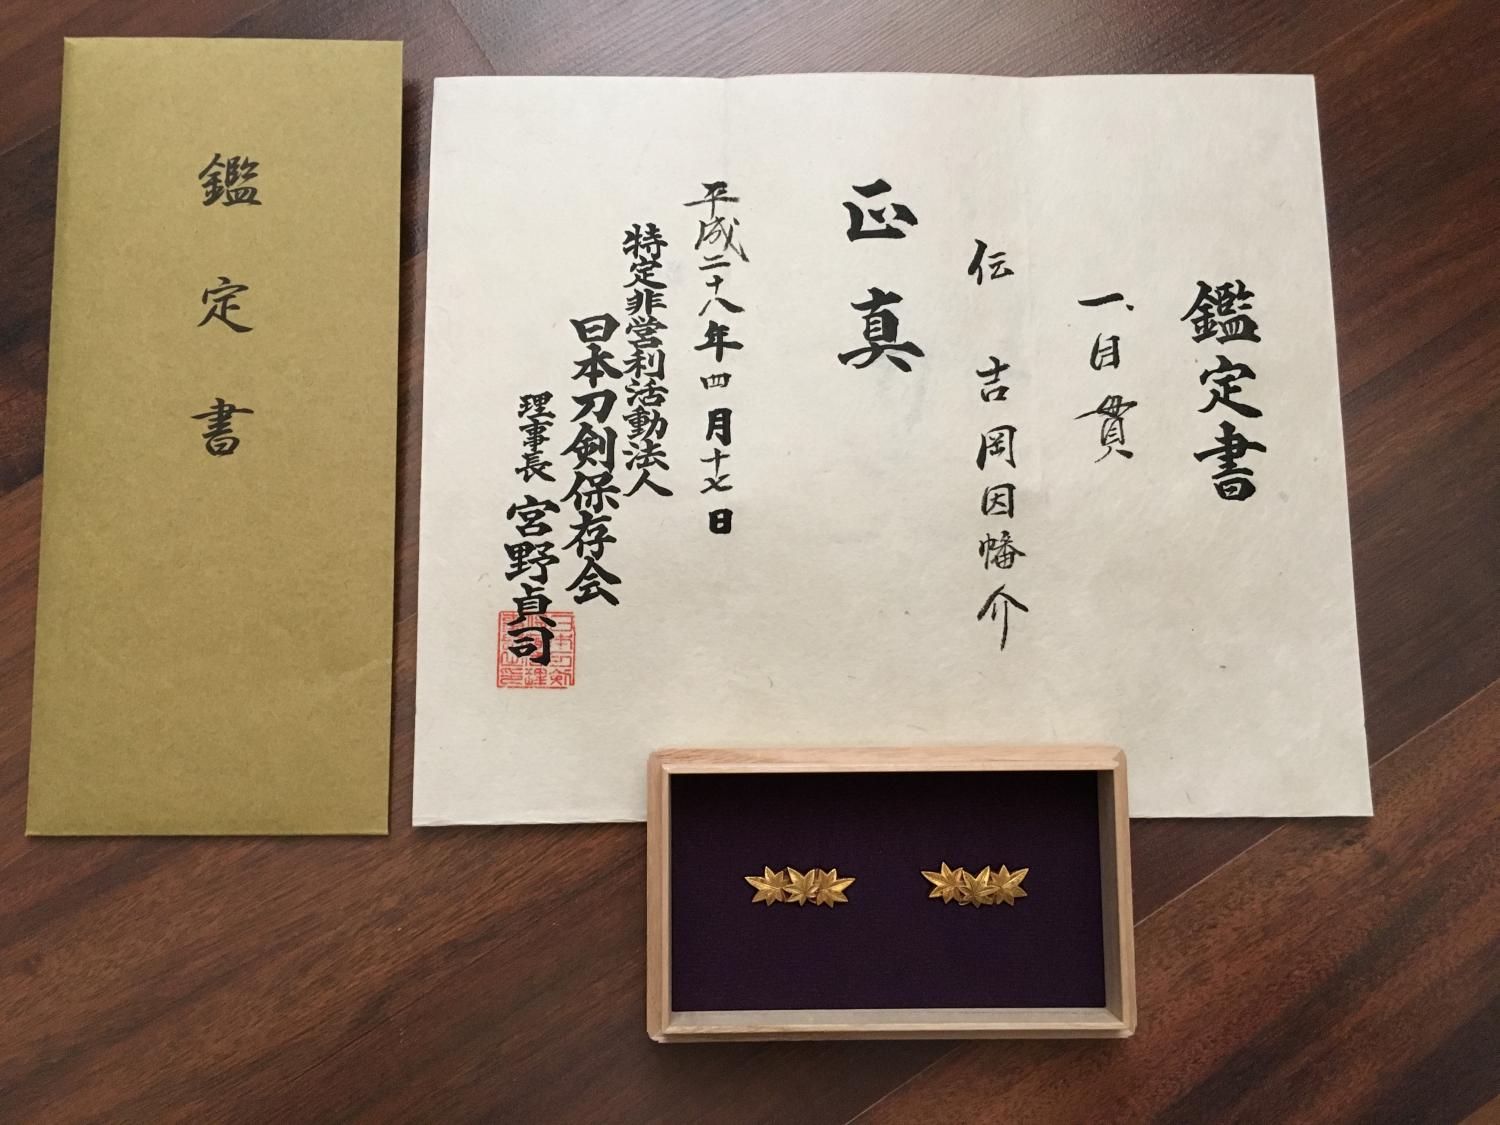 鑑定書
鑑定書
一、目貫
伝 吉岡因幡介
正真
平成二十八年四月十七日
特定非営利活動法人
日本刀剣保存会
理事長 宮野貞司